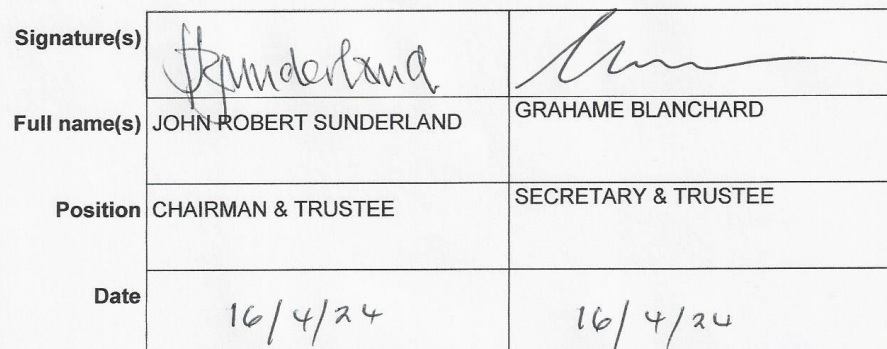 Signature(s) JRSunderland
Full name(s) JOHN ROBERT SUNDERLAND GRAHAME BLANCHARD
Position CHAIRMAN & TRUSTEE SECRETARY & TRUSTEE
Date 16/4/24 16/4/24